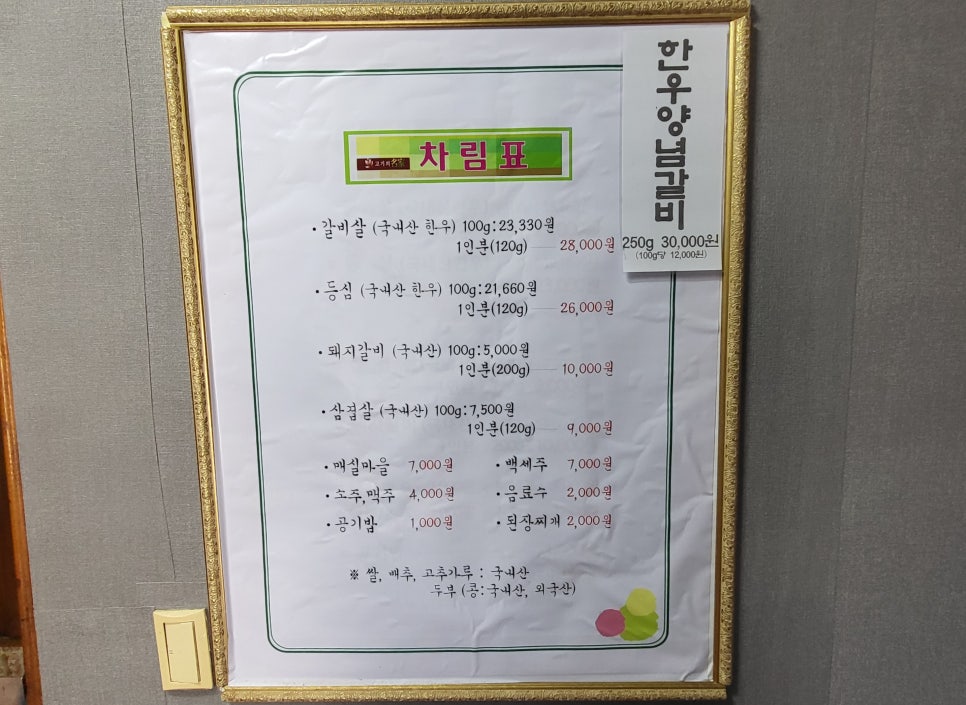 고기의 名家 차림표
• 갈비살 (국내산 한우) 100g:23,330원
1인분(120g) 28,000원
• 등심 (국내산 한우) 100g:21,660원
1인분(120g) 26,000원
• 돼지갈비 (국내산) 100g:5,000원
1인분(200g) 10,000원
• 삼겹살 (국내산) 100g:7,500원
1인분(120g) 9,000원
• 매실마을 7,000원 • 백세주 7,000원
• 소주,맥주 4,000원 • 음료수 2,000원
• 공기밥 1,000원 • 된장찌개 2,000원
※ 쌀, 배추, 고추가루 : 국내산
두부 (콩:국내산, 외국산)
한우양념갈비
250g 30,000원
(100g당 12,000원)